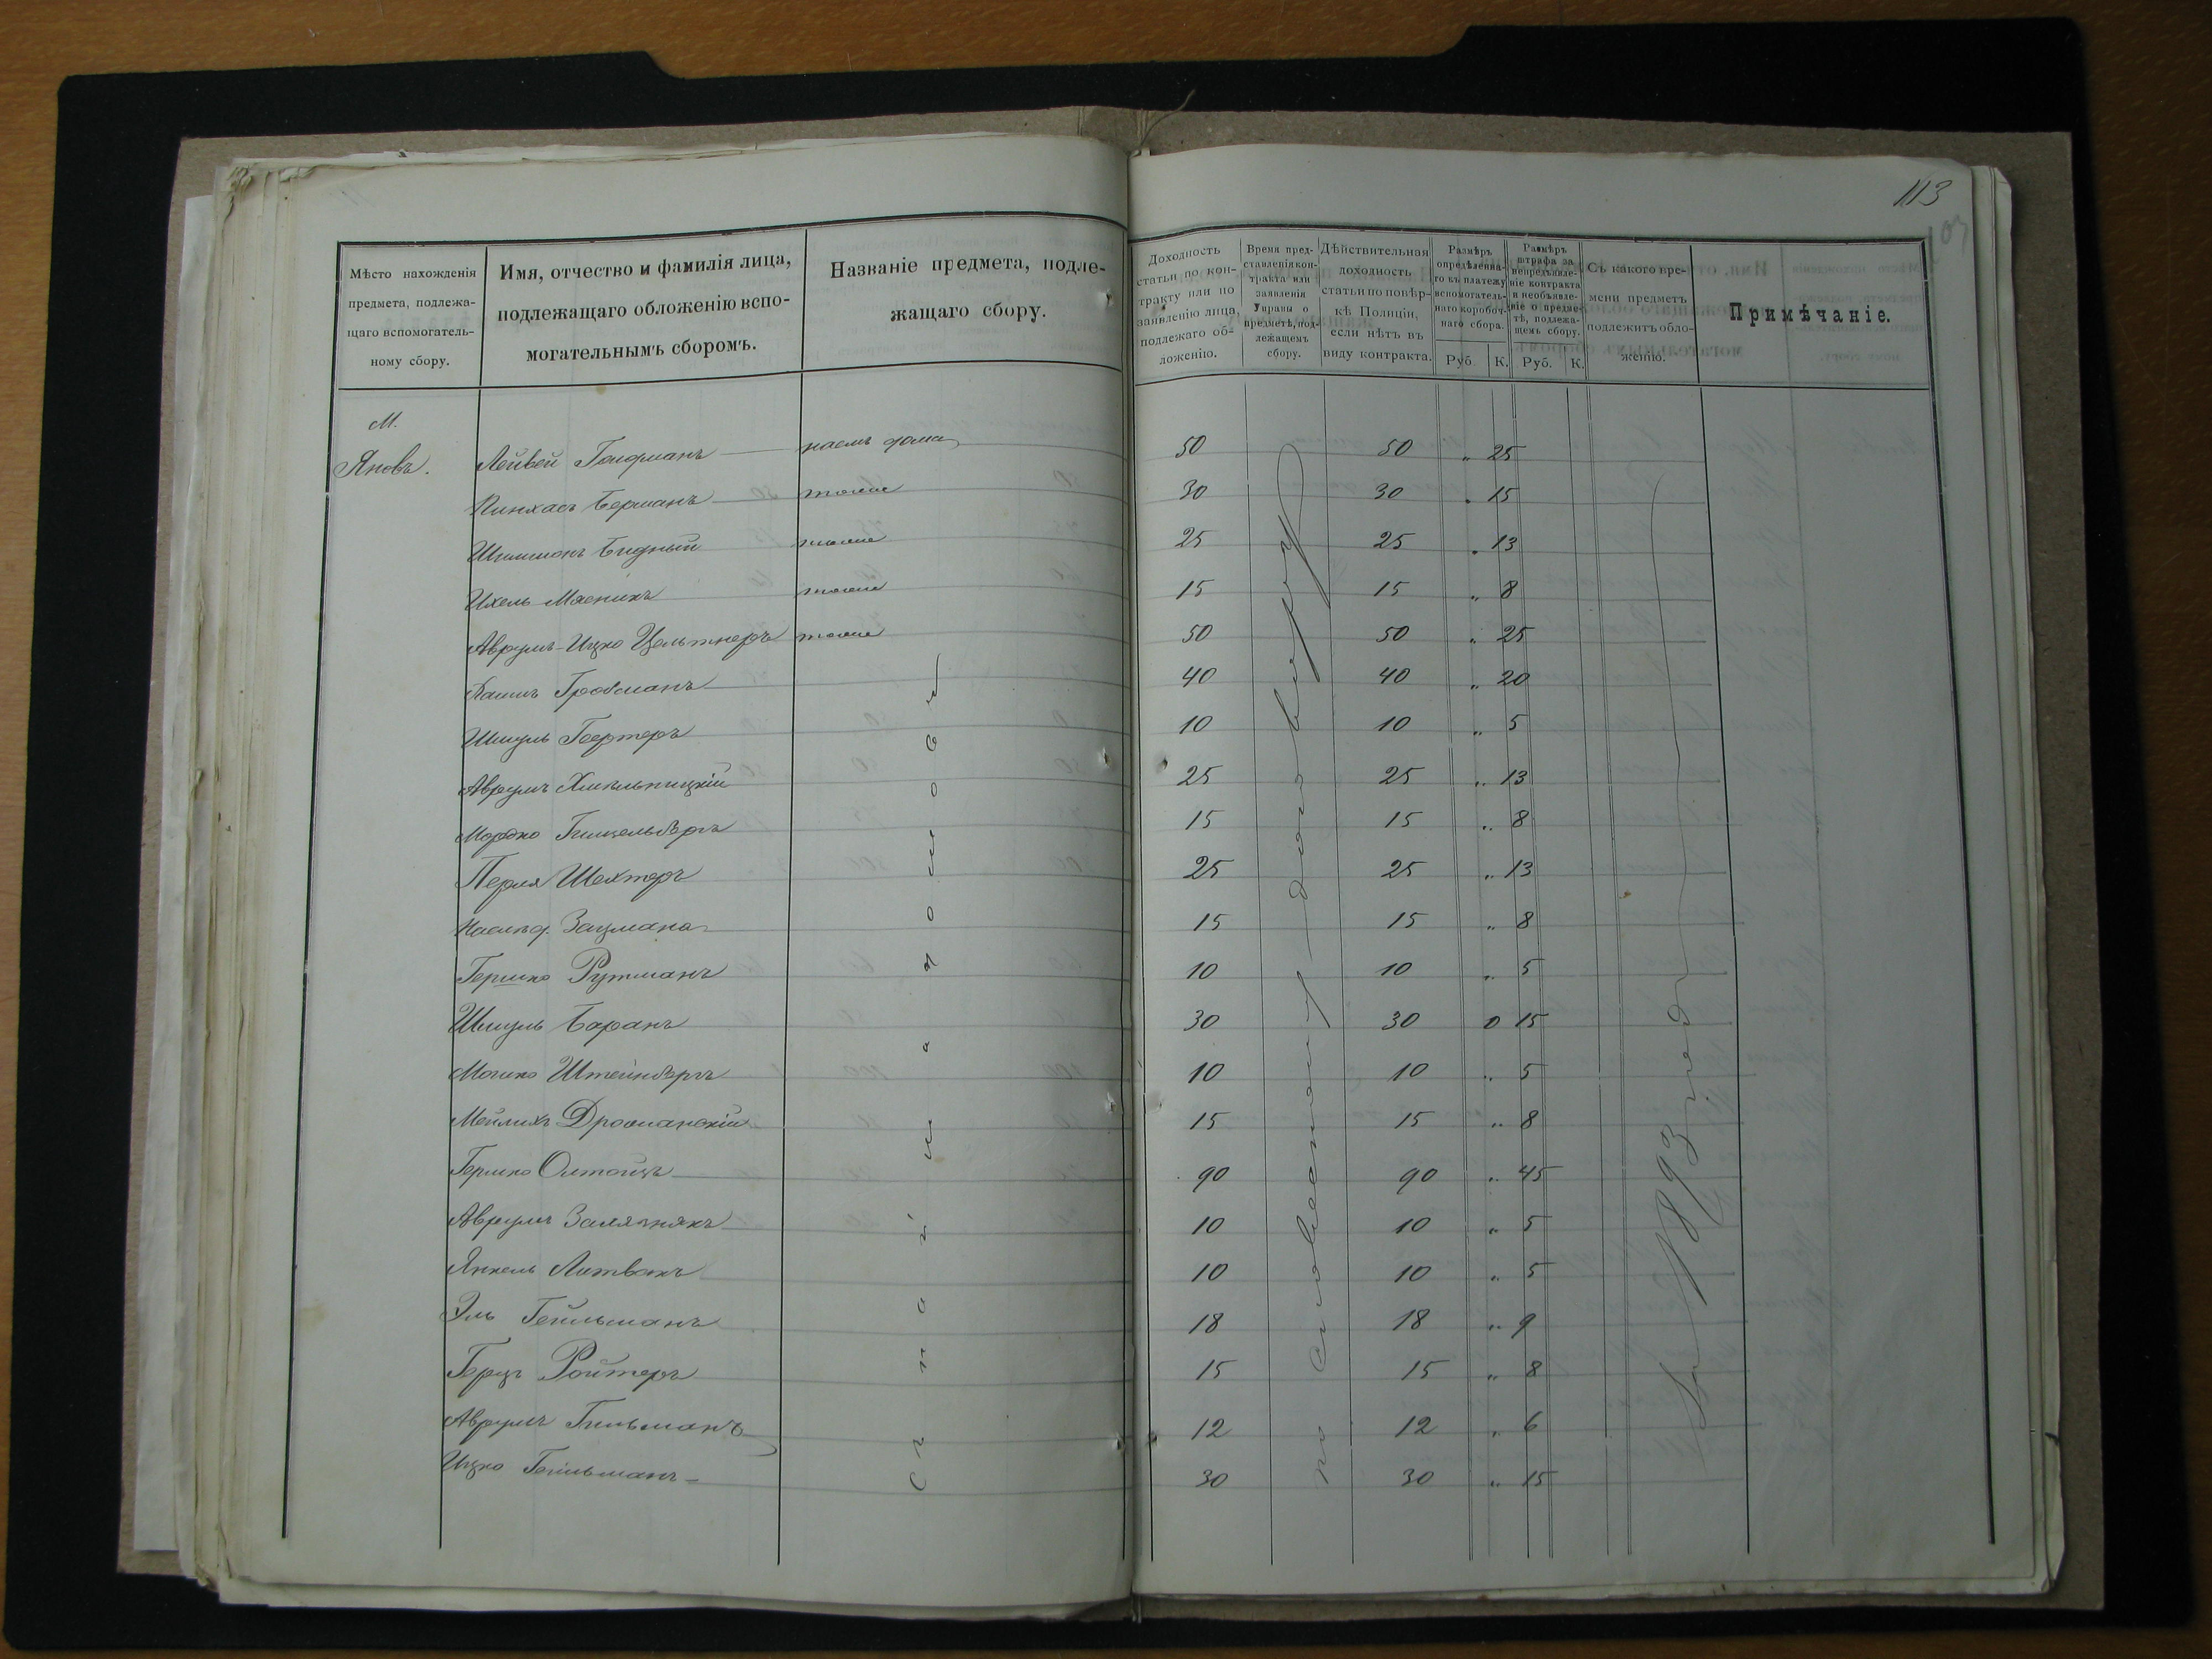 113
103
Мѣсто нахожденія предмета, подлежащаго вспомогательному сбору.
Имя, отчество и фамилія лица, подлежащаго обложенію вспомогательнымъ сборомъ.
Названіе предмета, подлежащаго сбору.
Доходность статьи по контракту или по заявленію лица, подлежаго обложенію.
Время представленія контракта или заявленія Управы о предметѣ, подлежащемъ сбору.
Дѣйствительная доходность статьи по повѣркѣ Полиціи, если нѣтъ въ виду контракта.
Размѣръ опредѣленнаго къ платежу вспомогательнаго коробочнаго сбора. Руб. К.
Размѣръ штрафа за непредъявленіе контракта и необъявленіе о предметѣ, подлежащемъ сбору. Руб. К.
Съ какого времени предметъ подлежитъ обложенію.
Примѣчаніе.
М.
Яновъ. Лейвей Гойфманъ наемъ дома 50 50 " 25
Пинхасъ Берманъ тоже 30 30 " 15
Шимонъ Бидный тоже 25 25 " 13
Ихель Мясникъ тоже 15 15 " 8
Аврумъ-Ицко Цельтнеръ тоже 50 50 " 25
Гросманъ 40 40 " 20
Шмуль Гертеръ 10 10 " 5
Аврумъ Хмѣльницкій 25 25 " 13
Мордко 15 15 " 8
Перля Шехтеръ 25 25 " 13
Наслѣд. Зацмана 15 15 " 8
Гершко Рутманъ 10 10 " 5
Шмуль Баранъ 30 30 0 15
Мошко Штейнбергъ 10 10 " 5
Мейлихъ 15 15 " 8
Гершко 90 90 " 45
Аврумъ 10 10 " 5
Янкель Литвакъ 10 10 " 5
Эль Гейльманъ 18 18 " 9
Герцъ Ройтеръ 15 15 " 8
Аврумъ Гильманъ 12 12 " 6
Ицко Гейльманъ 30 30 " 15
Съ наймa домовъ
по словесному договору
За 1893 годъ